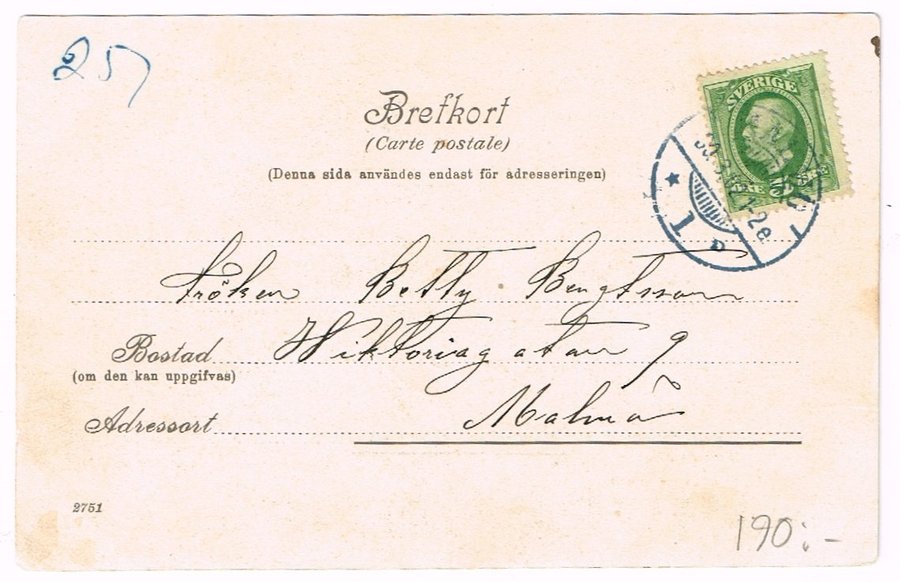 25
Brefkort
(Carte postale)
(Denna sida användes endast för adresseringen)
SVERIGE
1
D
Fröken Betty Bengtsson
Bostad Wiktoriagatan 9
(om den kan uppgifvas)
Adressort Malmö
2751
190:-